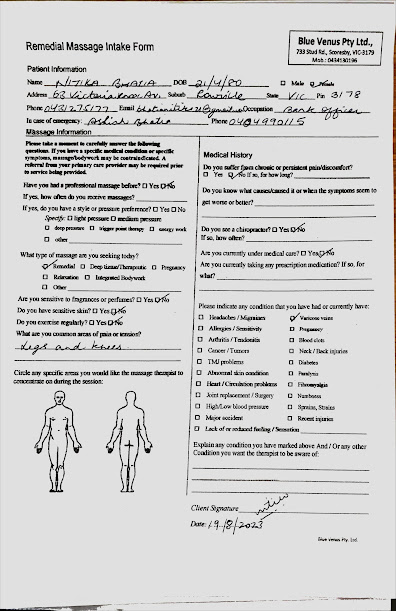 Blue Venus Pty Ltd.,
733 Stud Rd., Scoresby, VIC-3179
Mob : 0434130196
Remedial Massage Intake Form
Patient Information
Name NITIKA BHATIA DOB 21/4/80 □ Male ☑ Female
Address 63 Victoria Av. Suburb Rowville State VIC Pin 3178
Phone 0431275177 Email Occupation Bank Officer
In case of emergency: Ashish Bhatia Phone 0404990115
Massage Information
Please take a moment to carefully answer the following
questions. If you have a specific medical condition or specific
symptoms, massage/bodywork may be contraindicated. A
referral from your primary care provider may be required prior
to service being provided.
Have you had a professional massage before? □ Yes ☑ No
If yes, how often do you receive massages?
If yes, do you have a style or pressure preference? □ Yes □ No
Specify: □ light pressure □ medium pressure
□ deep pressure □ trigger point therapy □ energy work
□ other
What type of massage are you seeking today?
☑ Remedial □ Deep tissue/Therapeutic □ Pregnancy
□ Relaxation □ Integrated Bodywork
□ Other
Are you sensitive to fragrances or perfumes? □ Yes ☑ No
Do you have sensitive skin? □ Yes ☑ No
Do you exercise regularly? □ Yes ☑ No
What are you common areas of pain or tension?
Legs and knees
Circle any specific areas you would like the massage therapist to
concentrate on during the session:
Medical History
Do you suffer from chronic or persistent pain/discomfort?
□ Yes ☑ No If so, for how long?
Do you know what causes/caused it or when the symptoms seem to
get worse or better?
Do you see a chiropractor? □ Yes ☑ No
If so, how often?
Are you currently under medical care? □ Yes ☑ No
Are you currently taking any prescription medication? If so, for
what?
Please indicate any condition that you have had or currently have:
□ Headaches / Migraines ☑ Varicose veins
□ Allergies / Sensitivity □ Pregnancy
□ Arthritis / Tendonitis □ Blood clots
□ Cancer / Tumors □ Neck / Back injuries
□ TMJ problems □ Diabetes
□ Abnormal skin condition □ Paralysis
□ Heart / Circulation problems □ Fibromyalgia
□ Joint replacement / Surgery □ Numbness
□ High/Low blood pressure □ Sprains, Strains
□ Major accident □ Recent injuries
□ Lack of or reduced feeling / Sensation
Explain any condition you have marked above And / Or any other
Condition you want the therapist to be aware of:
Client Signature
Date: 19/8/2023
Blue Venus Pty. Ltd.